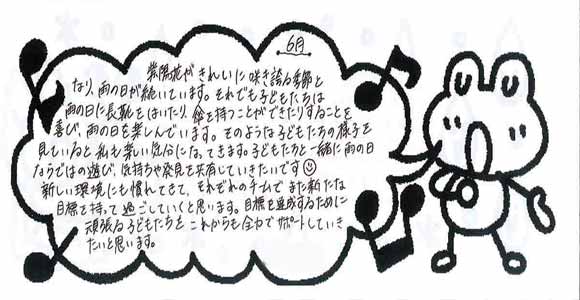 6月
紫陽花がきれいに咲き誇る季節と
なり、雨の日が続いています。それでも子どもたちは
雨の日に長靴をはいたり、傘を持つことができたりすることを
喜び、雨の日を楽しんでいます。そのような子どもたちの様子を
見ていると私も楽しい気分になってきます。子どもたちと一緒に雨の日
ならではの遊び、気持ちや発見を共有していきたいです☺
新しい環境にも慣れてきて、それぞれのチームでまた新たな
目標を持って過ごしていくと思います。目標を達成するために
頑張る子どもたちをこれからも全力でサポートしていき
たいと思います。